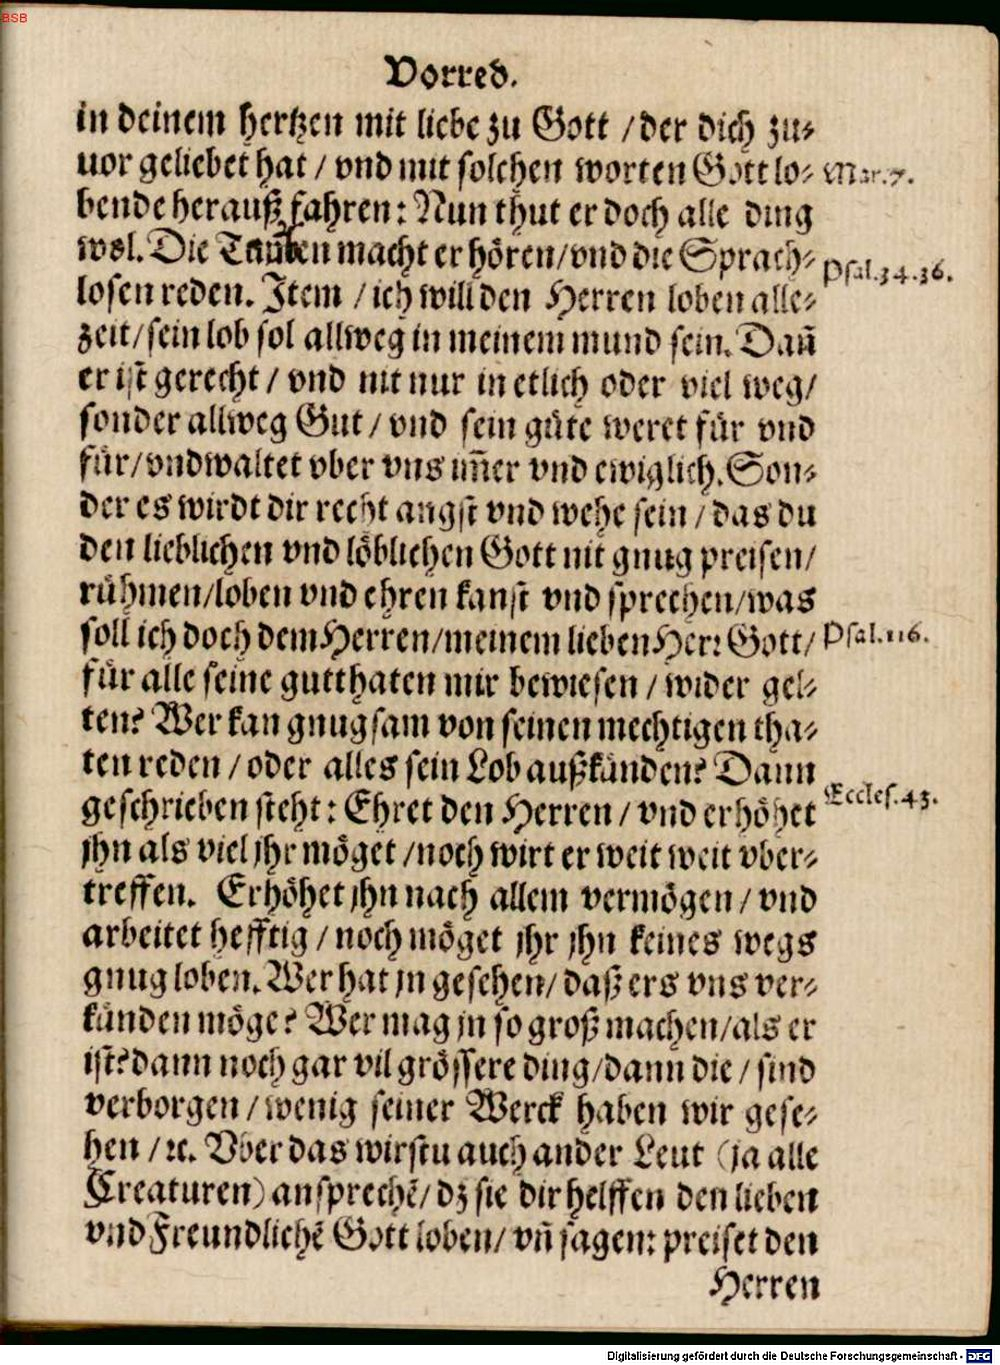 BSB
Vorred.
in deinem hertzen mit liebe zu Gott / der dich zu⸗
uor geliebet hat / vnd mit solchen worten Gott lo⸗ Mar.7.
bende herauß fahren: Nun thut er doch alle ding
wol. Die Tauben macht er hören/vnd die Sprach⸗ Psal.34.36.
losen reden. Item / ich will den Herren loben alle⸗
zeit/sein lob sol allweg in meinem mund sein. Dañ
er ist gerecht / vnd nit nur in etlich oder viel weg/
sonder allweg Gut / vnd sein güte weret für vnd
für/vnd waltet vber vns im̃er vnd ewiglich. Son⸗
der es wirdt dir recht angst vnd wehe sein / das du
den lieblichen vnd löblichen Gott nit gnug preisen/
rühmen/loben vnd ehren kanst vnd sprechen/was
soll ich doch dem Herren/meinem lieben Herr Gott/ Psal.116.
für alle seine gutthaten mir bewiesen / wider gel⸗
ten? Wer kan gnugsam von seinen mechtigen tha⸗
ten reden / oder alles sein Lob außkünden? Dann
geschrieben steht: Ehret den Herren / vnd erhöhet Eccles.43.
jhn als viel jhr möget / noch wirt er weit weit vber⸗
treffen. Erhöhet jhn nach allem vermögen / vnd
arbeitet hefftig / noch möget jhr jhn keines wegs
gnug loben. Wer hat jn gesehen/ daß ers vns ver⸗
künden möge? Wer mag jn so groß machen/als er
ist? dann noch gar vil grössere ding/dann die / sind
verborgen / wenig seiner Werck haben wir gese⸗
hen / ꝛc. Vber das wirstu auch ander Leut (ja alle
Creaturen) ansprechẽ/ dz sie dir helffen den lieben
vnd Freundlichẽ Gott loben/ vñ sagen: preiset den
Herren
Digitalisierung gefördert durch die Deutsche Forschungsgemeinschaft - DFG